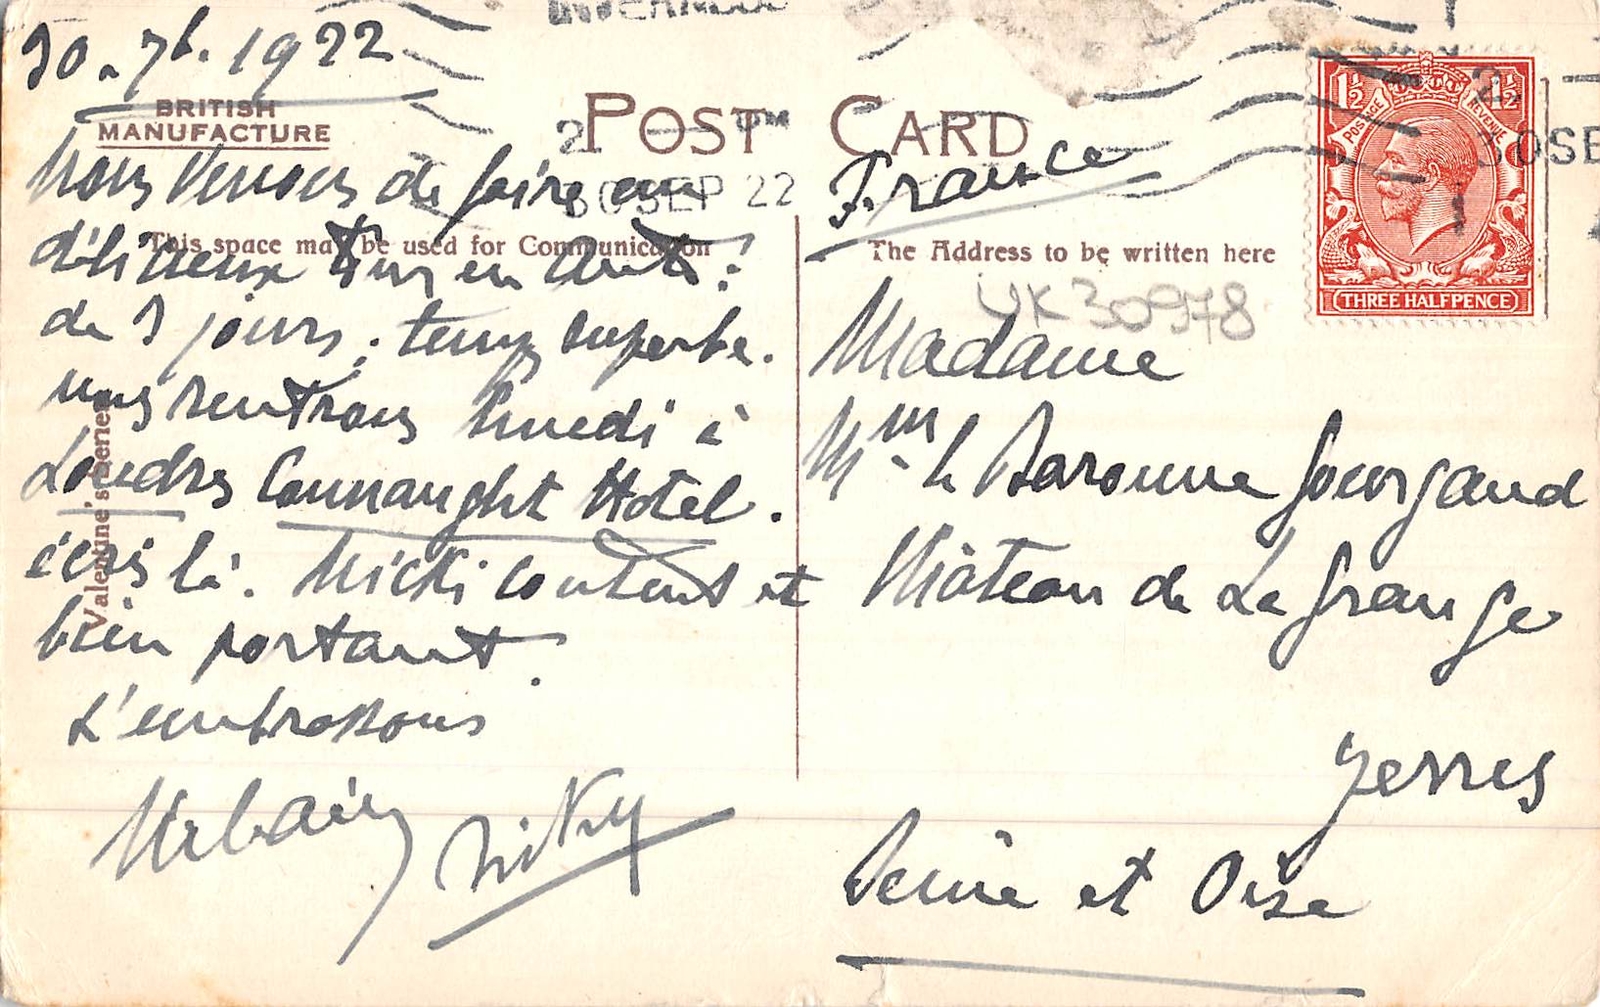 30. 7b. 1922
BRITISH
MANUFACTURE
POST CARD
30 SEP 22
This space may be used for Communication
The Address to be written here
Valentine's Series
Nous venons de faire un
délicieux tour en auto
de 3 jours, temps superbe.
nous rentrons lundi à
Londres Connaught Hotel.
écris là. Nicki content et
bien portant.
t'embrassons
Urbain Nicky
France
UK30978
Madame
Mme la Baronne Gourgaud
Château de La Grange
Yerres
Seine et Oise
POSTAGE REVENUE
1½ 1½
THREE HALFPENCE
30SE